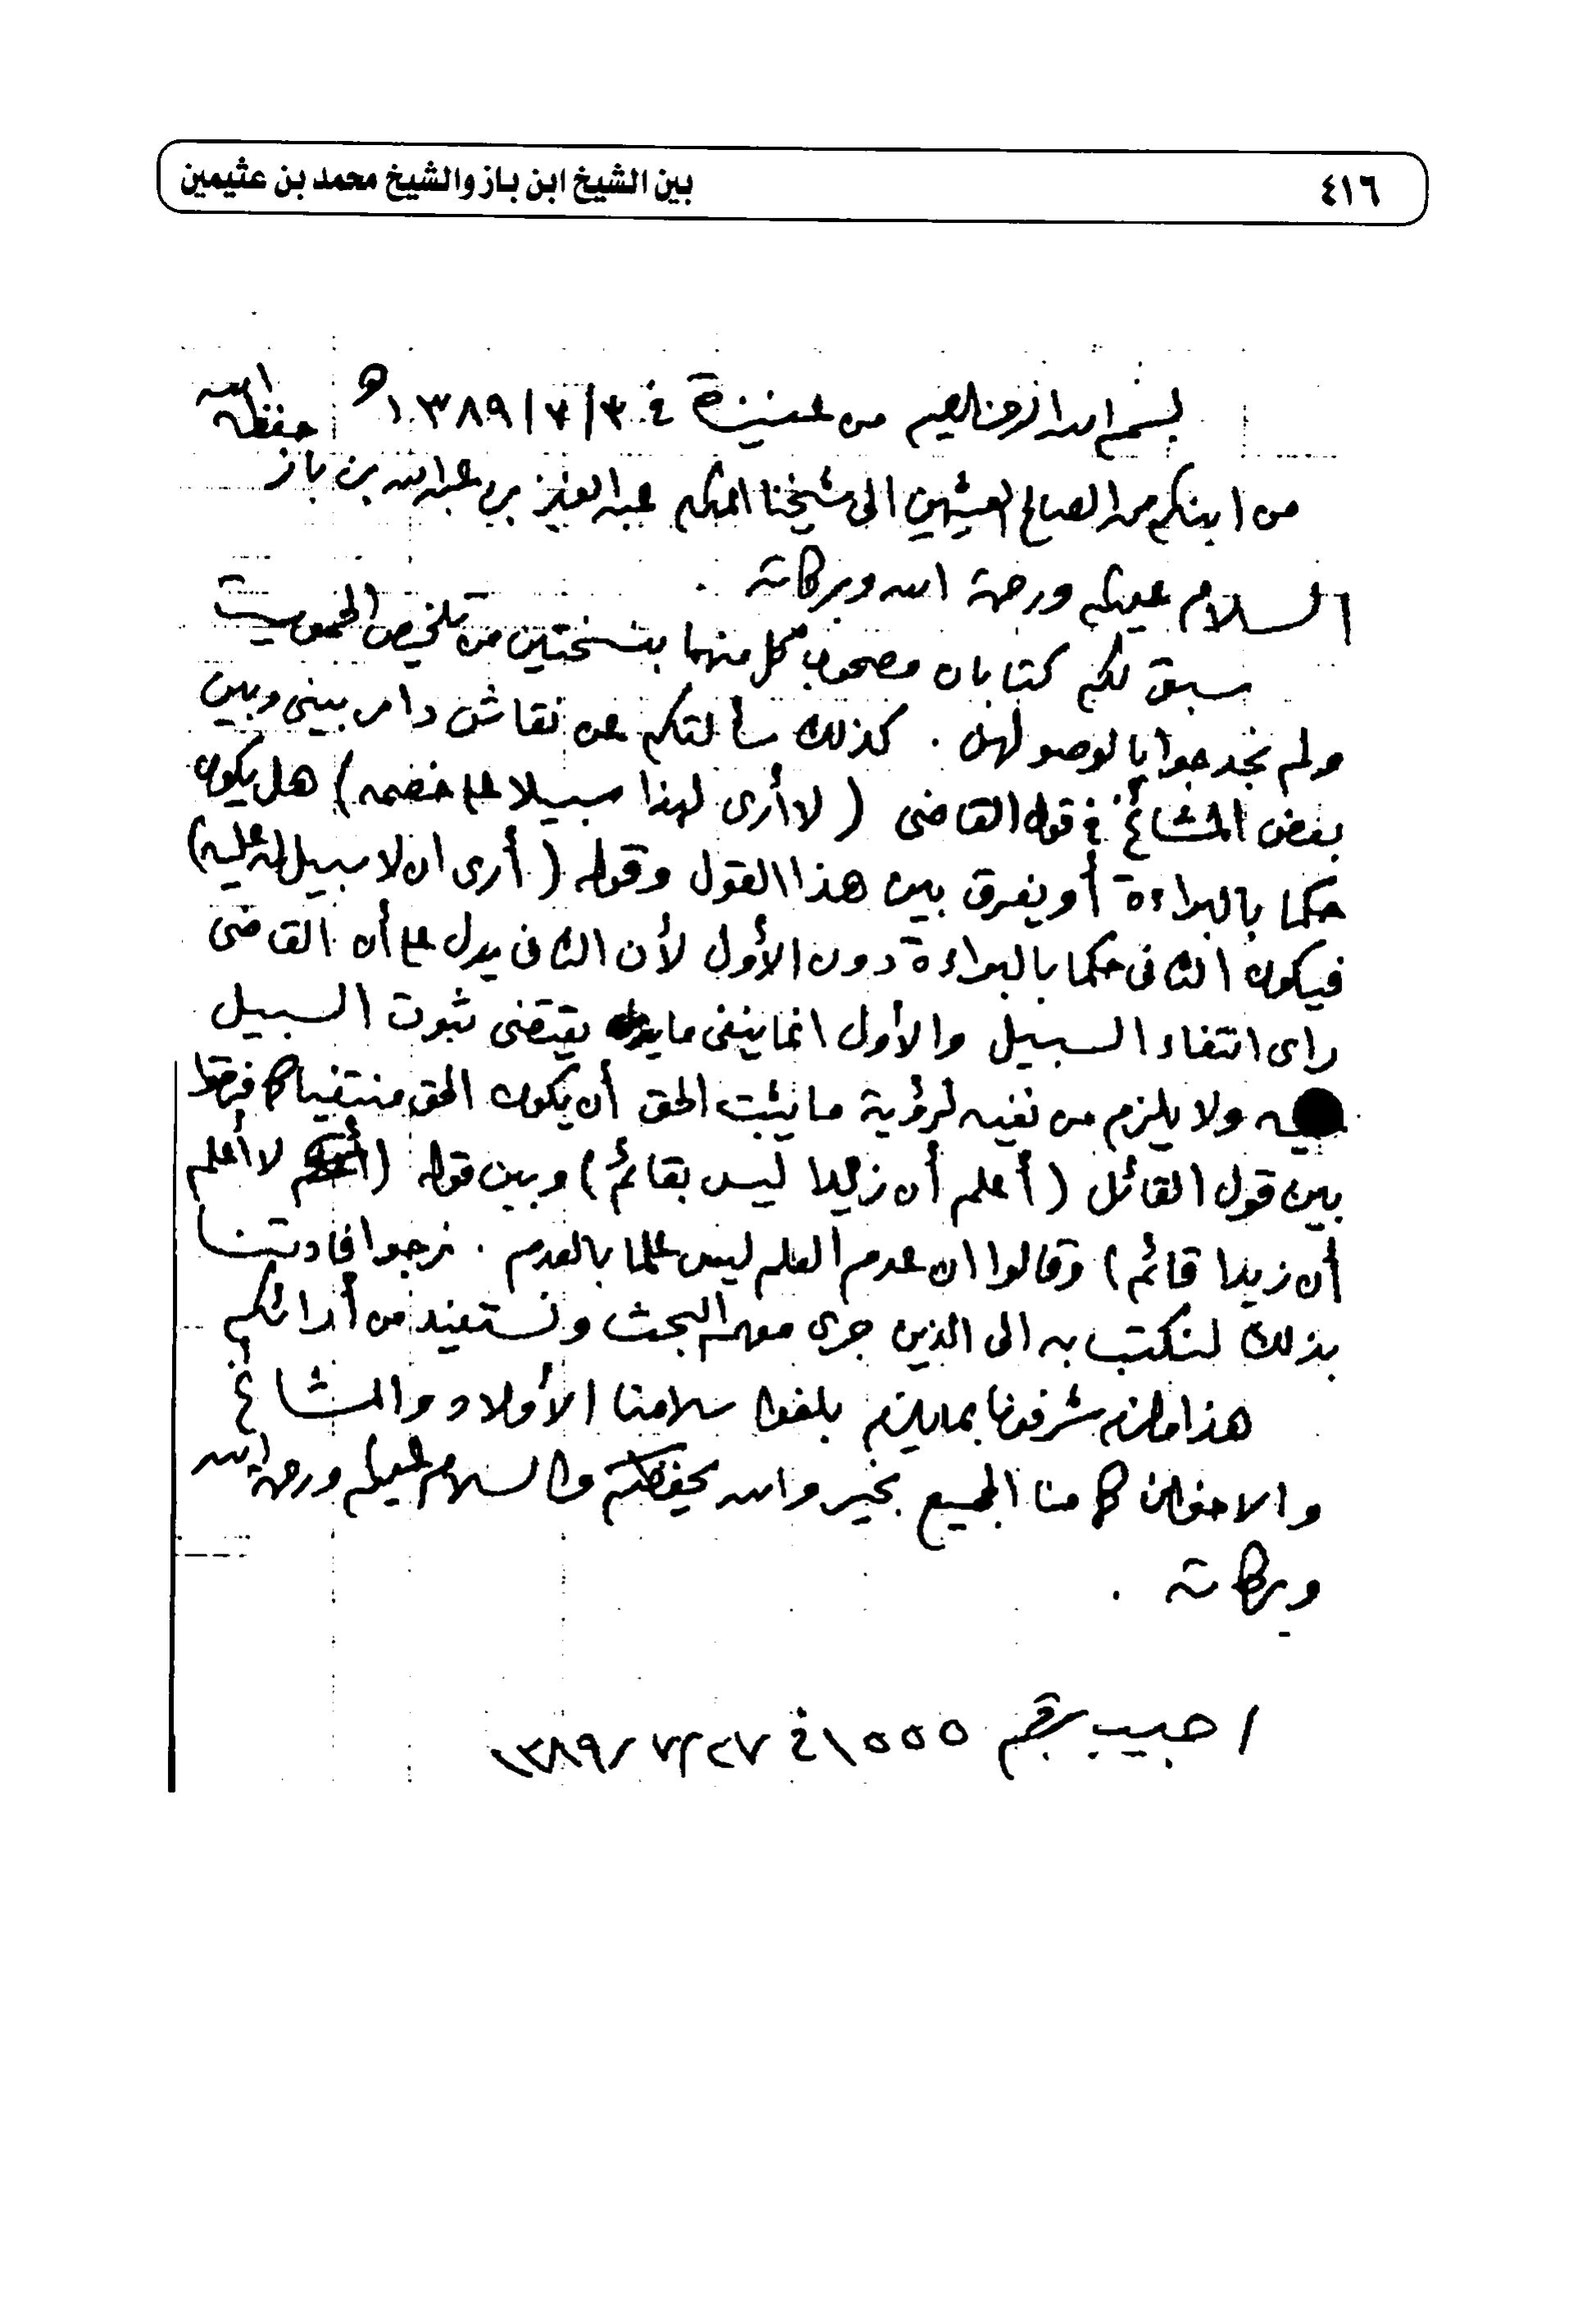 ٤١٦
بين الشيخ ابن باز والشيخ محمد بن عثيمين
بسم الله الرحمن الرحيم من عنيزة في ٣/٧/١٣٨٩ هـ
من ابنكم محمد الصالح العثيمين الى شيخنا المكرم عبد العزيز بن عبد الله بن باز حفظه الله
السلام عليكم ورحمة الله وبركاته .
سبق لكم كتابان مصحوب كل منهما بنسختين من تلخيص الحموية
ولم نجد جوابا لوصولهن . كذلك سألتكم عن نقاش دار بيني وبين
بعض المشائخ في قول القاضى ( لا أرى لهذا سبيلا على خصمه ) هل يكون
حكما بالبراءة أو يفرق بين هذا القول وقوله ( أرى ان لا سبيل له عليه )
فيكون الثانى حكما بالبراءة دون الأول لأن الثانى يدل على أن القاضى
راى انتفاء السبيل والأول انما ينفى ما يقتضى ثبوت السبيل
ولا يلزم من نفيه لرؤية ما يثبت الحق أن يكون الحق منتفيا كما فرقوا
بين قول القائل ( أعلم أن زيدا ليس بقائم ) وبين قوله ( لا أعلم
أن زيدا قائم ) وقالوا ان عدم العلم ليس علما بالعدم . نرجوا افادتنا
بذلك لنكتب به الى الذين جرى معهم البحث ونستفيد من أرائكم
هذا ما لزم شرفونا بما يلزم بلغوا سلامنا الأولاد والمشائخ
والاخوان كما منا الجميع بخير والله يحفظكم والسلام عليكم ورحمة الله
وبركاته .
اجيب برقم ١٥٥٥ في ٢٧/٧/١٣٨٩